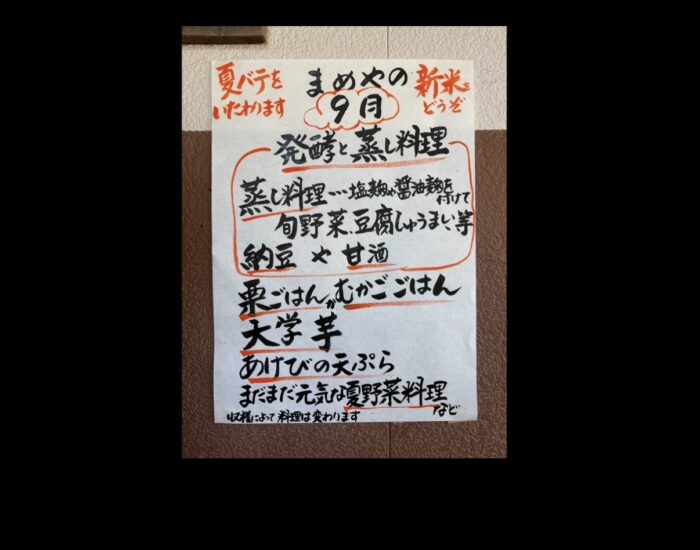 夏バテを
いたわります
まめやの
9月
新米を
どうぞ
発酵と蒸し料理
蒸し料理…塩麹や醤油麹を
付けて
旬野菜、豆腐しゅうまい、等
納豆や甘酒
栗ごはんかむかごごはん
大学芋
あけびの天ぷら
まだまだ元気な夏野菜料理
など
収穫によって料理は変わります